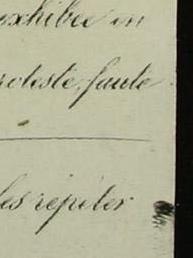 exhibée en
proteste, faute
les répéter